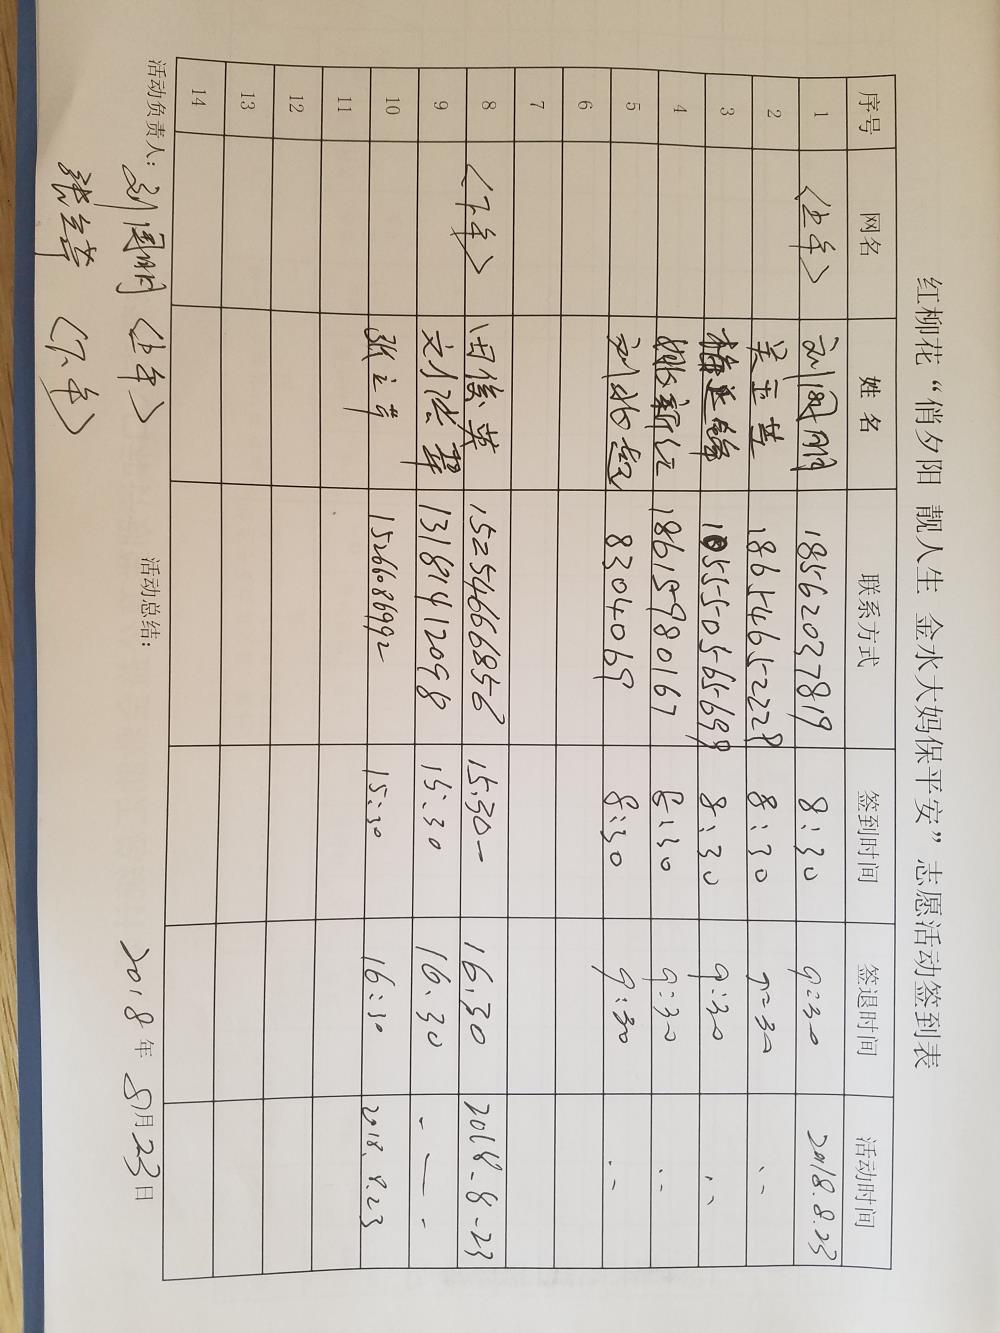 红柳花“俏夕阳 靓人生 金水大妈保平安”志愿活动签到表
序号 网名 姓名 联系方式 签到时间 签退时间 活动时间
1 〈上午〉 刘国明 18562037819 8:30 9:30 2018.8.23
2 吴玉英 18654652228 8:30 9:30 〃
3 5505565699 8:30 9:30 〃
4 姚新红 18615980167 8:30 9:30 〃
5 8304069 8:30 9:30 〃
6
7
8 〈下午〉 田俊英 15254666856 15.30 16.30 2018-8-23
9 13181412098 15:30 16.30
10 15266086992 15:30 16:30 2018.8.23
11
12
13
14
活动负责人: 刘国明〈上午〉 活动总结: 2018年8月23日
〈下午〉